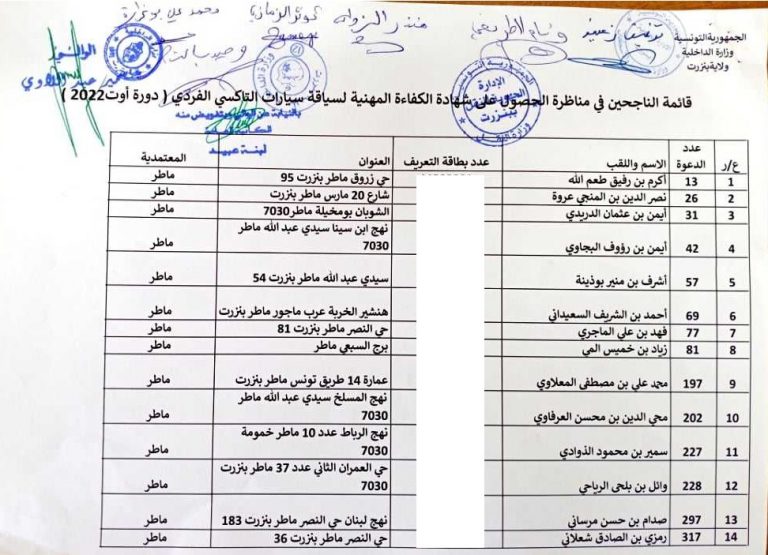 الجمهورية التونسية
وزارة الداخلية
ولاية بنزرت
الإدارة
الجهوية
ببنزرت
قائمة الناجحين في مناظرة الحصول على شهادة الكفاءة المهنية لسياقة سيارات التاكسي الفردي ( دورة أوت2022 )
لبنة عبيد
ع/ر عدد الدعوة الاسم واللقب عدد بطاقة التعريف العنوان المعتمدية
1 13 أكرم بن رفيق طعم الله حي زروق ماطر بنزرت 95 ماطر
2 26 نصر الدين بن المنجي عروة شارع 20 مارس ماطر بنزرت ماطر
3 31 أيمن بن عثمان الدريدي الشوبان بومخيلة ماطر7030 ماطر
4 42 أيمن بن رؤوف البجاوي نهج ابن سينا سيدي عبد الله ماطر 7030 ماطر
5 57 أشرف بن منير بوذينة سيدي عبد الله ماطر بنزرت 54 ماطر
6 69 أحمد بن الشريف السعيداني هنشير الخربة عرب ماجور ماطر بنزرت ماطر
7 77 فهد بن علي الماجري حي النصر ماطر بنزرت 81 ماطر
8 81 زياد بن خميس المي برج السبعي ماطر ماطر
9 197 محمد علي بن مصطفى المعلاوي عمارة 14 طريق تونس ماطر بنزرت ماطر
10 202 محي الدين بن محسن العرفاوي نهج المسلخ سيدي عبد الله ماطر 7030 ماطر
11 227 سمير بن محمود الذوادي نهج الرباط عدد 10 ماطر خمومة 7030 ماطر
12 228 وائل بن بلحي الرياحي حي العمران الثاني عدد 37 ماطر بنزرت 7030 ماطر
13 297 صدام بن حسن مرساني نهج لبنان حي النصر ماطر بنزرت 183 ماطر
14 317 رمزي بن الصادق شعلاني حي النصر ماطر بنزرت 36 ماطر